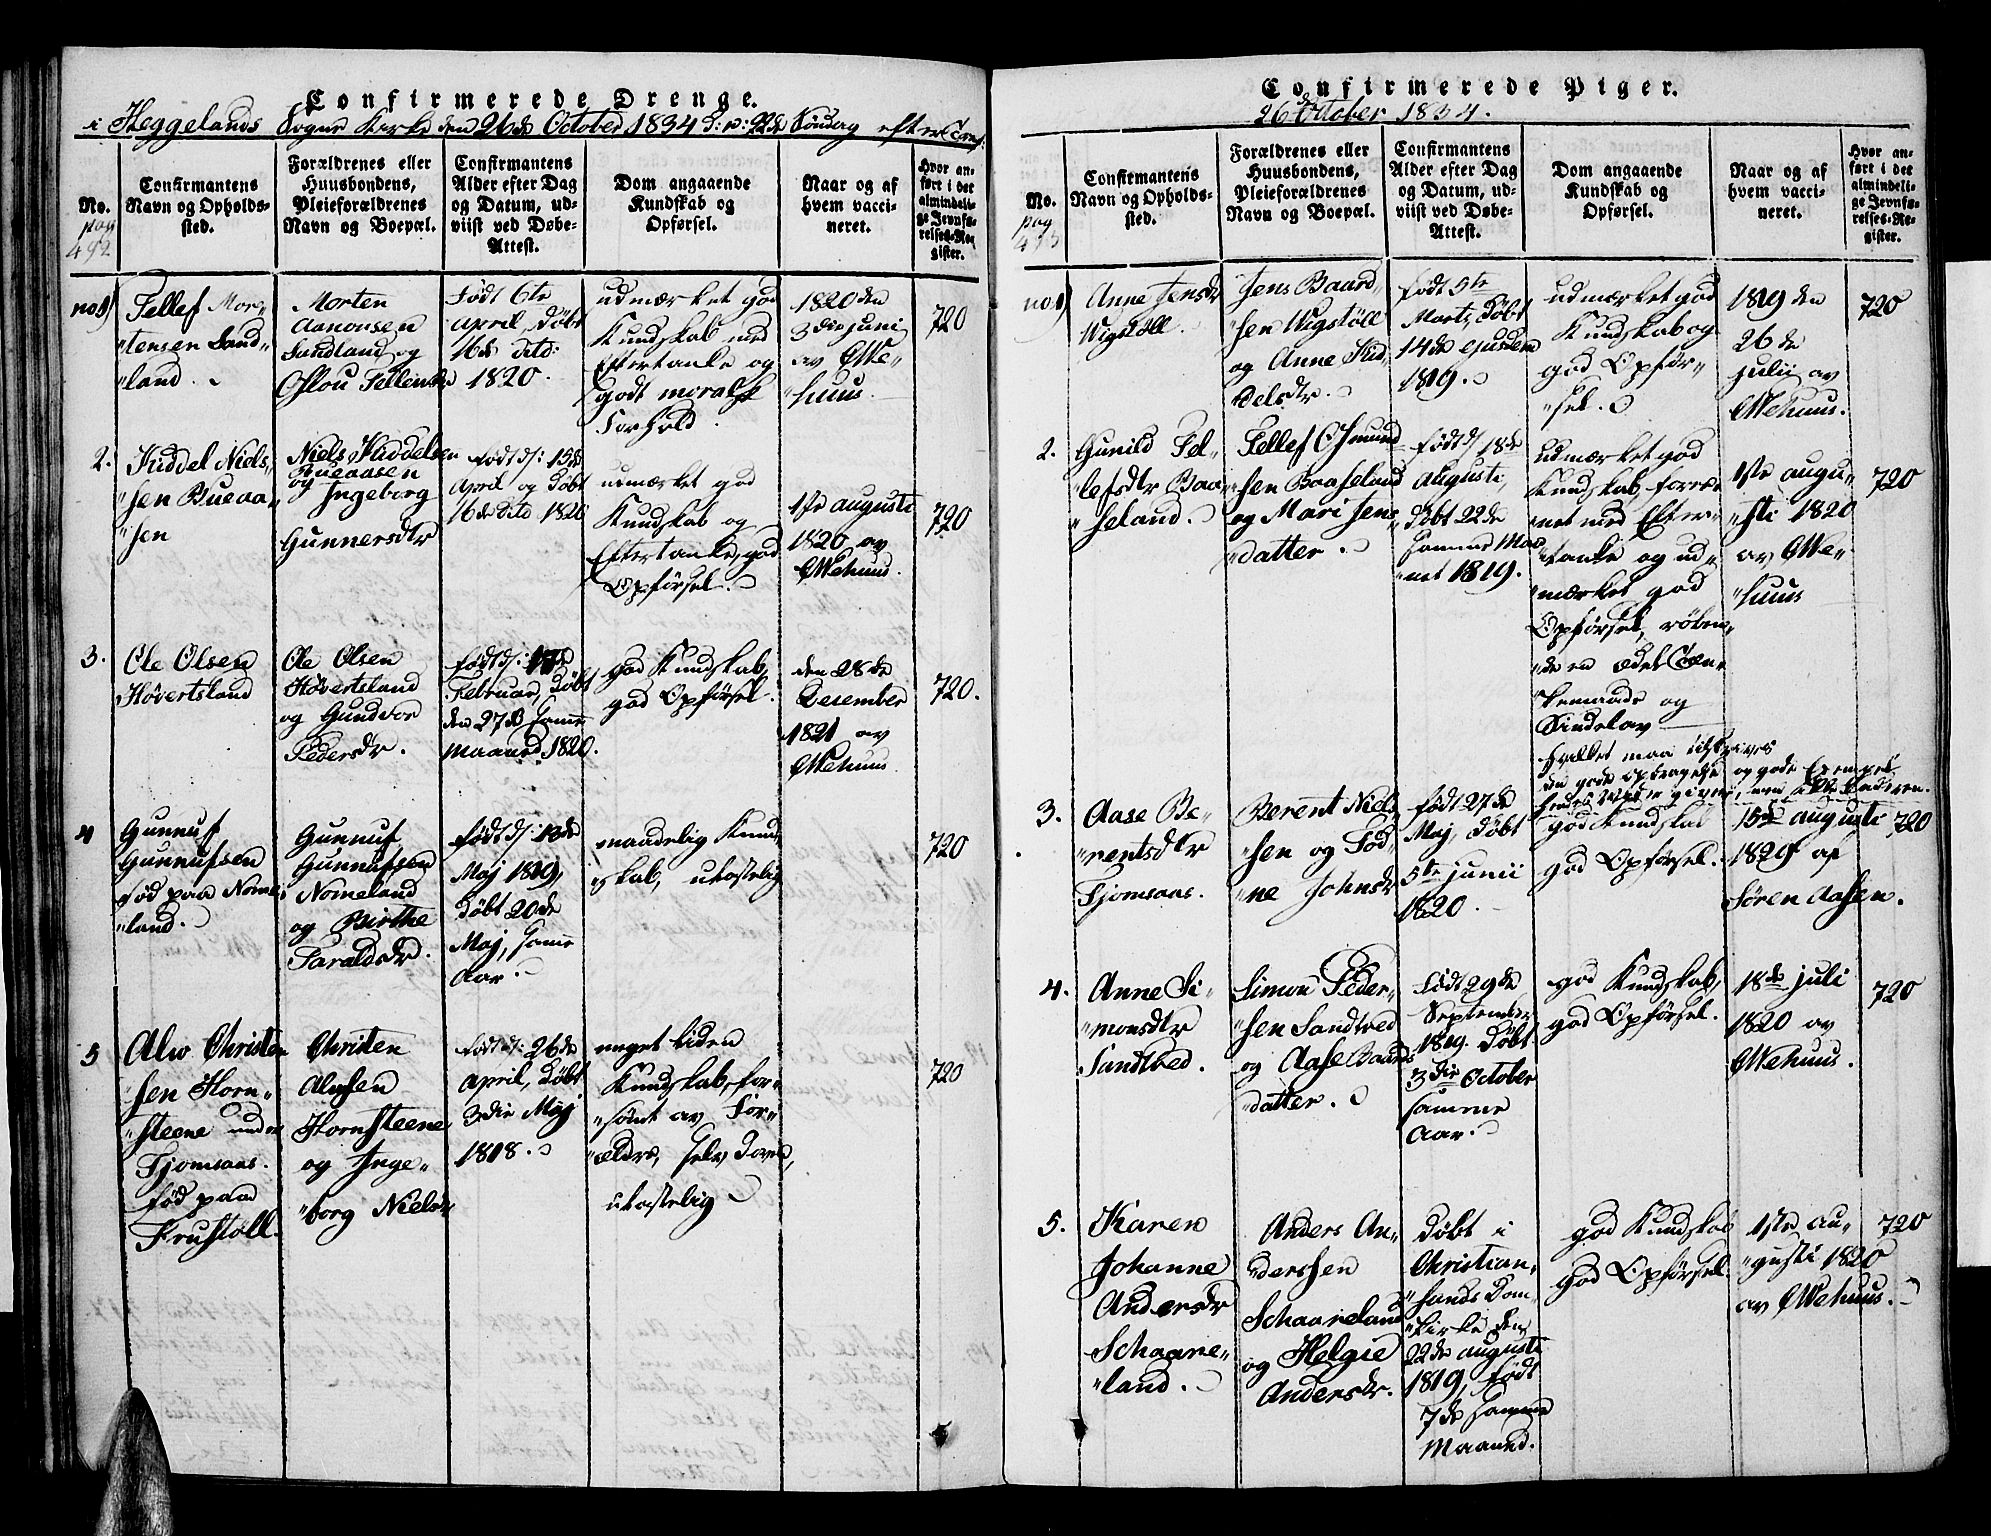 Confirmerede Drenge.
i Heggelands Sogne Kirke den 26de October 1834 d: v: 22de Søndag efter
No.
Confirmantens
Navn og Opholds-
sted.
Forældrenes eller
Huusbondens,
Pleieforældrenes
Navn og Boepæl.
Confirmantens
Alder efter Dag
og Datum, ud-
viist ved Døbe-
Attest.
Dom angaaende
Kundskab og
Opførsel.
Naar og af
hvem vacci-
neret.
Hvor an-
ført i det
almindeli-
ge Jevnfø-
relses-Re-
gister.
pag
492
no 1)
Tellef Mor-
tensen Sand-
land.
Morten
Aanonsen
Sandland og
Født 6te
April, Døbt
16de dito:
1820.
udmærket god
Kundskab med
Eftertanke og
godt moralsk
Forhold.
1820 den
3die juni
av OWe-
huus.
720
2.
Kiddel Niels-
sen Bueaa-
sen
Niels Kiddelsen
Bueaasen
og Ingeborg
Gunnersdtr
født d: 15de
April og Døbt
16de dito 1820
udmærket god
Kundskab og
Eftertanke, god
Opførsel.
1ste augusti
1820 av
OWehuus.
720
3.
Ole Olsen
Høvertsland
Ole Olsen
Høvertsland
og Gundvor
Pedersdr.
født d: 17de
Februar, Døbt
den 27de samme
maaned 1820.
god Kundskab,
god Opførsel.
den 28de
Desember
1821 av
OWehuus
720.
4
Gunnuf
Gunnufsen
fød paa Nome-
land.
Gunnuf
Gunnufsen
Nomeland
og Birthe
Taraldsdr.
født d: 13de
Maj 1819,
Døbt 20de
Maj, samme
Aar.
maadelig Kund-
skab, ulastelig
720
5
Alw Christen-
sen Horn-
steene under
Tjomsaas.
fød paa
Frustøll.
Christen
Alwsen
Hornsteene
og Inge-
borg Niels-
født d: 26de
April, Døbt
3die Maj
1818.
meget liden
Kundskab, for-
sømt av For-
ældre, selv doven,
ulastelig
720
Confirmerede Piger.
26de October 1834.
No.
Confirmantens
Navn og Opholds-
sted.
Forældrenes eller
Huusbondens,
Pleieforældrenes
Navn og Boepæl.
Confirmantens
Alder efter Dag
og Datum, ud-
viist ved Døbe-
Attest.
Dom angaaende
Kundskab og
Opførsel.
Naar og af
hvem vacci-
neret.
Hvor an-
ført i det
almindeli-
ge Jevnfø-
relses-Re-
gister.
pag
493
no 1)
Anne Jensdr
Wigstøll.
Jens Baard-
sen Wigstøll
og Anne Kid-
delsdtr.
født 5te
Marts, Døbt
14de ejusdem
1819.
udmærket god
Kundskab og
god Opfør-
sel.
1819 den
26de
julii av
OWehuus.
720
2.
Gunild Tel-
lefsdtr Baa-
seland.
Tellef Osmund-
sen Baaseland
og Mari Jens-
datter.
født d/ 18de
Augusti,
Døbt 22de
samme Maa-
net 1819.
udmærket god
Kundskab, foree-
net med Efter-
tanke og ud-
mærket god
Opførsel, røben-
de en ædel Tæn-
kemaade og
Sindelav
hvilket maa tilskrives
den gode optragelse og gode Exempel
1ste augu-
sti 1820
av OWe-
huus
720
3.
Aase Be-
rentsdtr
Tjomsaas.
Berent Niel-
sen og Tod-
ne Johnsdr
født 27de
Maj, Døbt
5te junii
1820.
god Kundskab
god Opførsel.
15de augusti
1829 af
Søren Aasen.
720
4.
Anne Si-
monsdtr
Sandtved.
Simon Peder-
sen Sandtved
og Aase Baards-
datter.
født 29de
September
1819. Døbt
3die October
samme
Aar.
god Kundskab,
god Opførsel.
18de juli
1820 av
OWehuus.
720
5.
Karen
Johanne
Andersdr
Schaare-
land.
Anders An-
derssen
Schaareland
og Helgie
Andersdr.
Døbt i
Christian-
sands Dom-
kirke den
22de augusti
1819, født
7de samme
Maaned.
god Kundskab
god Opførsel.
1ste au-
gusti 1820
av OWehuus.
720